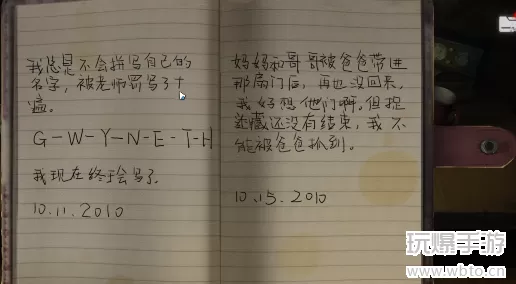 我总是不会拼写自己的
名字，被老师罚写了十
遍。
G-W-Y-N-E-T-H
我现在终于会写了
10.11.2010
妈妈和哥哥被爸爸带进
那扇门后，再也没回来，
我好想他们啊。但捉
迷藏还没有结束，我不
能被爸爸抓到。
10.15.2010
玩爆手游
www.wbto.cn